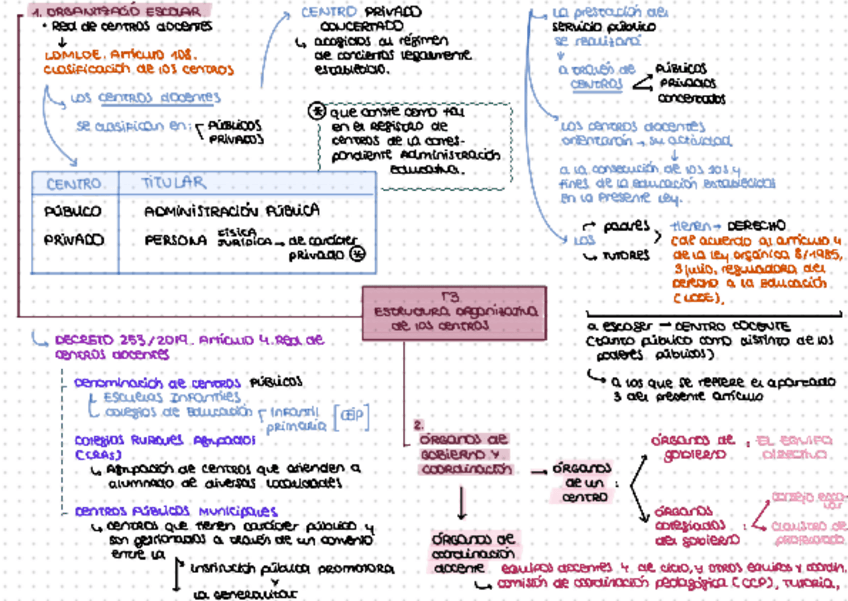 1. ORGANITZACIÓ ESCOLAR
• Red de centros docentes
LOMLOE. Artículo 108.
clasificación de los centros
Los centros docentes
se clasifican en: públicos
privados
CENTRO TITULAR
PÚBLICO ADMINISTRACIÓN PÚBLICA
PRIVADO PERSONA física
jurídica → de carácter
privado *
CENTRO PRIVADO
CONCERTADO
acogidos al régimen
de conciertos legalmente
establecido.
* que conste como tal
en el registro de
centros de la corres-
pondiente Administración
educativa.
La prestación del
servicio público
se realizará
a través de
centros
públicos
privados
concertados
Los centros docentes
orientarán → su actividad
a la consecución de los
fines de la educación establecidos
en la presente ley.
Los
padres
tutores
tienen → DERECHO
(de acuerdo al artículo 4
de la ley orgánica 8/1985,
3 julio, reguladora del
derecho a la educación
(LODE),
a escoger → CENTRO DOCENTE
(tanto público como distinto de los
poderes públicos)
a los que se refiere el apartado
3 del presente artículo
T3
ESTRUCTURA ORGANIZATIVA
de los centros
DECRETO 253/2019. Artículo 4. Red de
centros docentes
Denominación de centros públicos
Escuelas Infantiles
colegios de Educación infantil
primaria [CEIP]
Colegios Rurales Agrupados
(CRAs)
Agrupación de centros que atienden a
alumnado de diversas localidades
CENTROS Públicos Municipales
centros que tienen carácter público y
son gestionados a través de un convenio
entre la
institución pública promotora
y
la Generalitat
2.
ÓRGANOS de
GOBIERNO Y
COORDINACIÓN
ÓRGANOS
de un
CENTRO :
ÓRGANOS de
gobierno : EL EQUIPO
DIRECTIVO
ÓRGANOS
colegiados
del gobierno :
consejo esco-
lar
claustro de
profesorado
ÓRGANOS de
coordinación
docente
equipos docentes y de ciclo, y otros equipos y coordin.
comisión de coordinación pedagógica (COCOPE), tutoría,